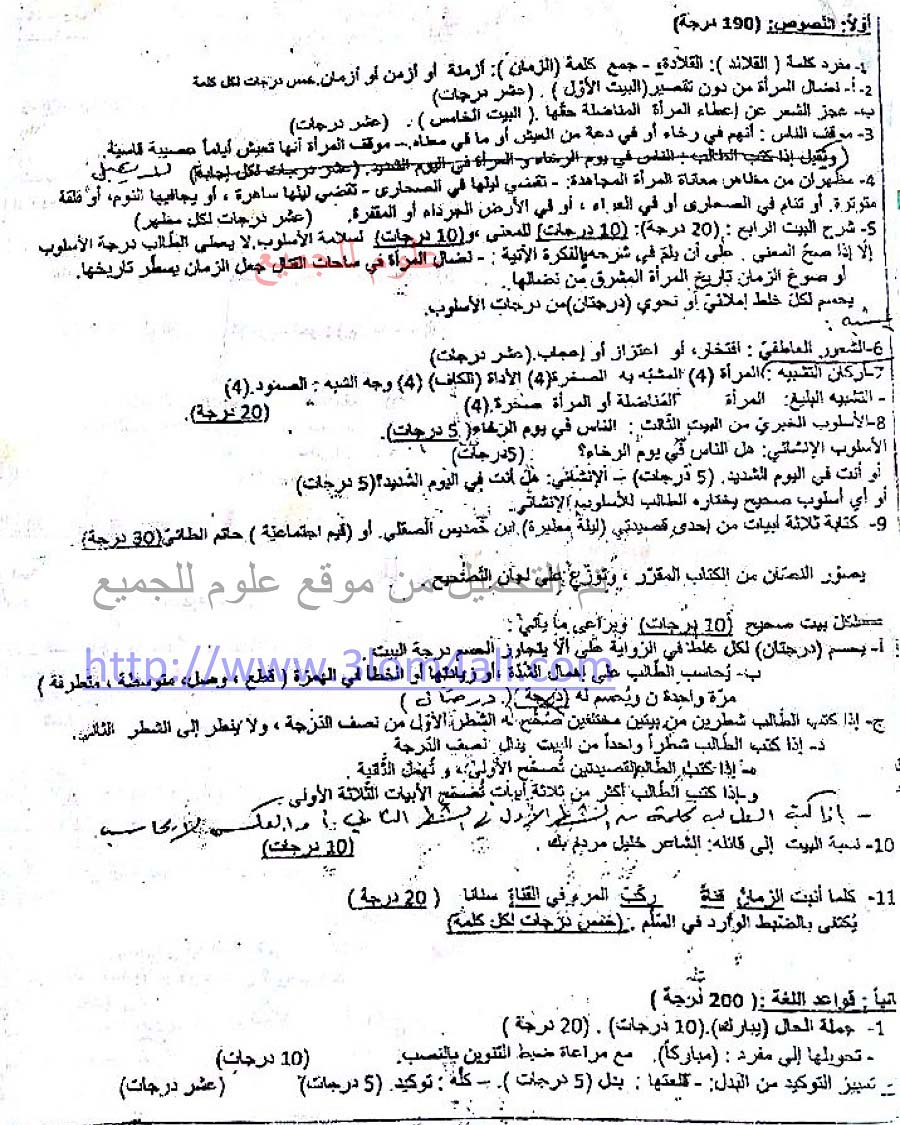 أولاً: النصوص: (190 درجة)
1- مفرد كلمة (القلائد): القلادة. - جمع كلمة (الزمان): أزمنة أو أزمن أو أزمان. خمس درجات لكل كلمة
2- أ- نضال المرأة من دون تقصير (البيت الأول). (عشر درجات)
ب- عجز الشعر عن إعطاء المرأة المناضلة حقها. (البيت الخامس). (عشر درجات)
3- موقف الناس: أنهم في رخاء أو في دعة من العيش أو ما في معناه. - موقف المرأة أنها تعيش أياماً عصيبة قاسية
(ونقبل إذا كتب الطالب: الناس في يوم الرخاء و المرأة في اليوم الشديد. (عشر درجات لكل إجابة)
4- مظهران من مظاهر معاناة المرأة المجاهدة: - تقضي ليلها في الصحارى - تقضي ليلها ساهرة، أو يجافيها النوم، أو قلقة
متوترة. أو تنام في الصحارى أو في العراء، أو في الأرض الجرداء أو المقفرة. (عشر درجات لكل مظهر)
5- شرح البيت الرابع: (20 درجة): (10 درجات) للمعنى، و(10 درجات) لسلامة الأسلوب. لا يعطى الطالب درجة الأسلوب
إلا إذا صح المعنى. على أن يلم في شرحه بالفكرة الآتية: - نضال المرأة في ساحات القتال جعل الزمان يسطر تاريخها.
أو صوغ الزمان تاريخ المرأة المشرق من نضالها.
يحسم لكل خلط إملائي أو نحوي (درجتان) من درجات الأسلوب.
6- الشعور العاطفي: افتخار، أو اعتزاز أو إعجاب. (عشر درجات)
7- أركان التشبيه: المرأة (4) المشبه به الصخرة (4) الأداة (الكاف) (4) وجه الشبه: الصمود. (4)
- التشبيه البليغ: المرأة المناضلة أو المرأة صخرة. (4) (20 درجة).
8- الأسلوب الخبري من البيت الثالث: الناس في يوم الرخاء (5 درجات).
الأسلوب الإنشائي: هل الناس في يوم الرخاء؟ (5 درجات)
أو أنت في اليوم الشديد. (5 درجات) - الإنشائي: هل أنت في اليوم الشديد؟ (5 درجات)
أو أي أسلوب صحيح يختاره الطالب للأسلوب الإنشائي.
9- كتابة ثلاثة أبيات من إحدى قصيدتي (ليلة مطيرة) ابن خمديس الصقلي. أو (قيم اجتماعية) حاتم الطائي (30 درجة).
يصور النصان من الكتاب المقرر، ويوزع على لجان التصحيح.
تم التحميل من موقع علوم للجميع
علوم للجميع
لكل بيت صحيح (10 درجات) ويراعى ما يأتي:
أ- يحسم (درجتان) لكل غلط في الرواية على ألا يتجاوز الحسم درجة البيت
http://www.3lom4all.com
ب- يُحاسب الطالب على إهمال الشدة، أو زيادتها أو الخطأ في الهمزة (قطع، وصل، متوسطة، متطرفة)
مرة واحدة ويُحسم له (درجة). درجتان)
ج- إذا كتب الطالب شطرين من بيتين مختلفين صُحّح له الشطر الأول من نصف الدرجة، ولا ينظر إلى الشطر الثاني.
د- إذا كتب الطالب شطراً واحداً من البيت ينال نصف الدرجة
هـ- إذا كتب الطالب القصيدتين تُصحّح الأولى، و تُهمل الثانية.
و- إذا كتب الطالب أكثر من ثلاثة أبيات تُصحح الأبيات الثلاثة الأولى
- إذا كتب الطالب كلمة من الشطر الأول في الشطر الثاني أو العكس لا يحاسب.
10- نسبة البيت إلى قائله: الشاعر خليل مردم بك. (10 درجات)
11- كلما أنبت الزمانُ قناةً ركّبَ المرءُ في القناةِ سنانا (20 درجة)
يُكتفى بالضبط الوارد في السلم. (خمس درجات لكل كلمة)
انياً: قواعد اللغة: (200 درجة)
1- جملة الحال (يبارك). (10 درجات). (20 درجة)
- تحويلها إلى مفرد: (مباركاً). مع مراعاة ضبط التنوين بالنصب. (10 درجات)
- تمييز التوكيد من البدل: - قلعتها: بدل (5 درجات). - كلّه: توكيد. (5 درجات) (عشر درجات)